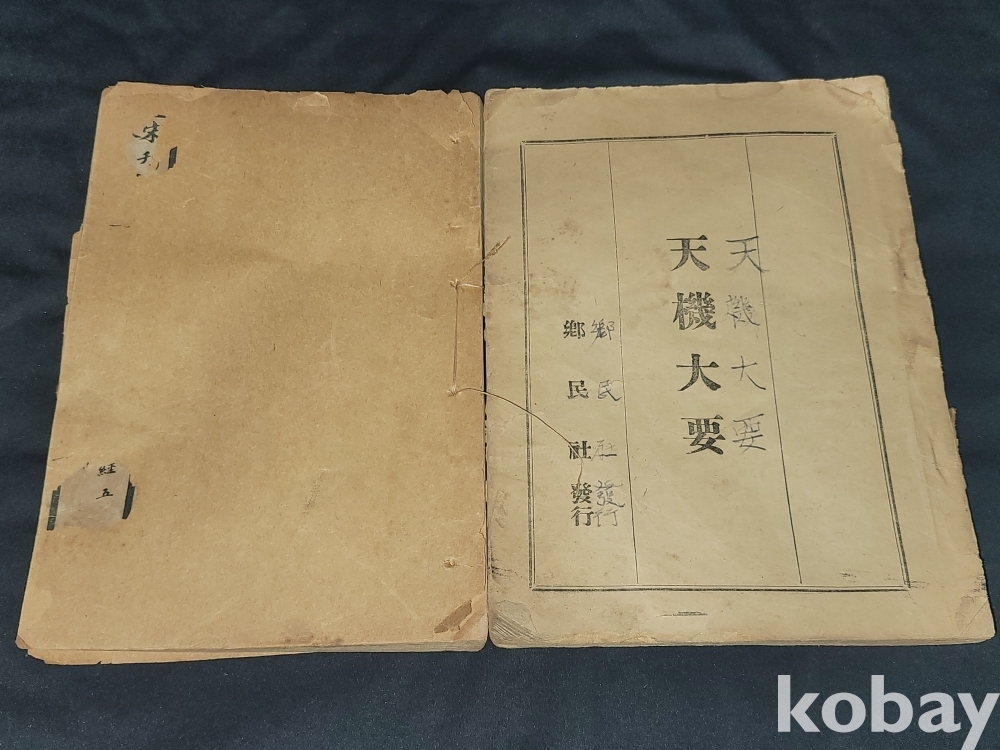 天機大要
天機大要
鄕民社發行
鄕民社發行
経五
kobay